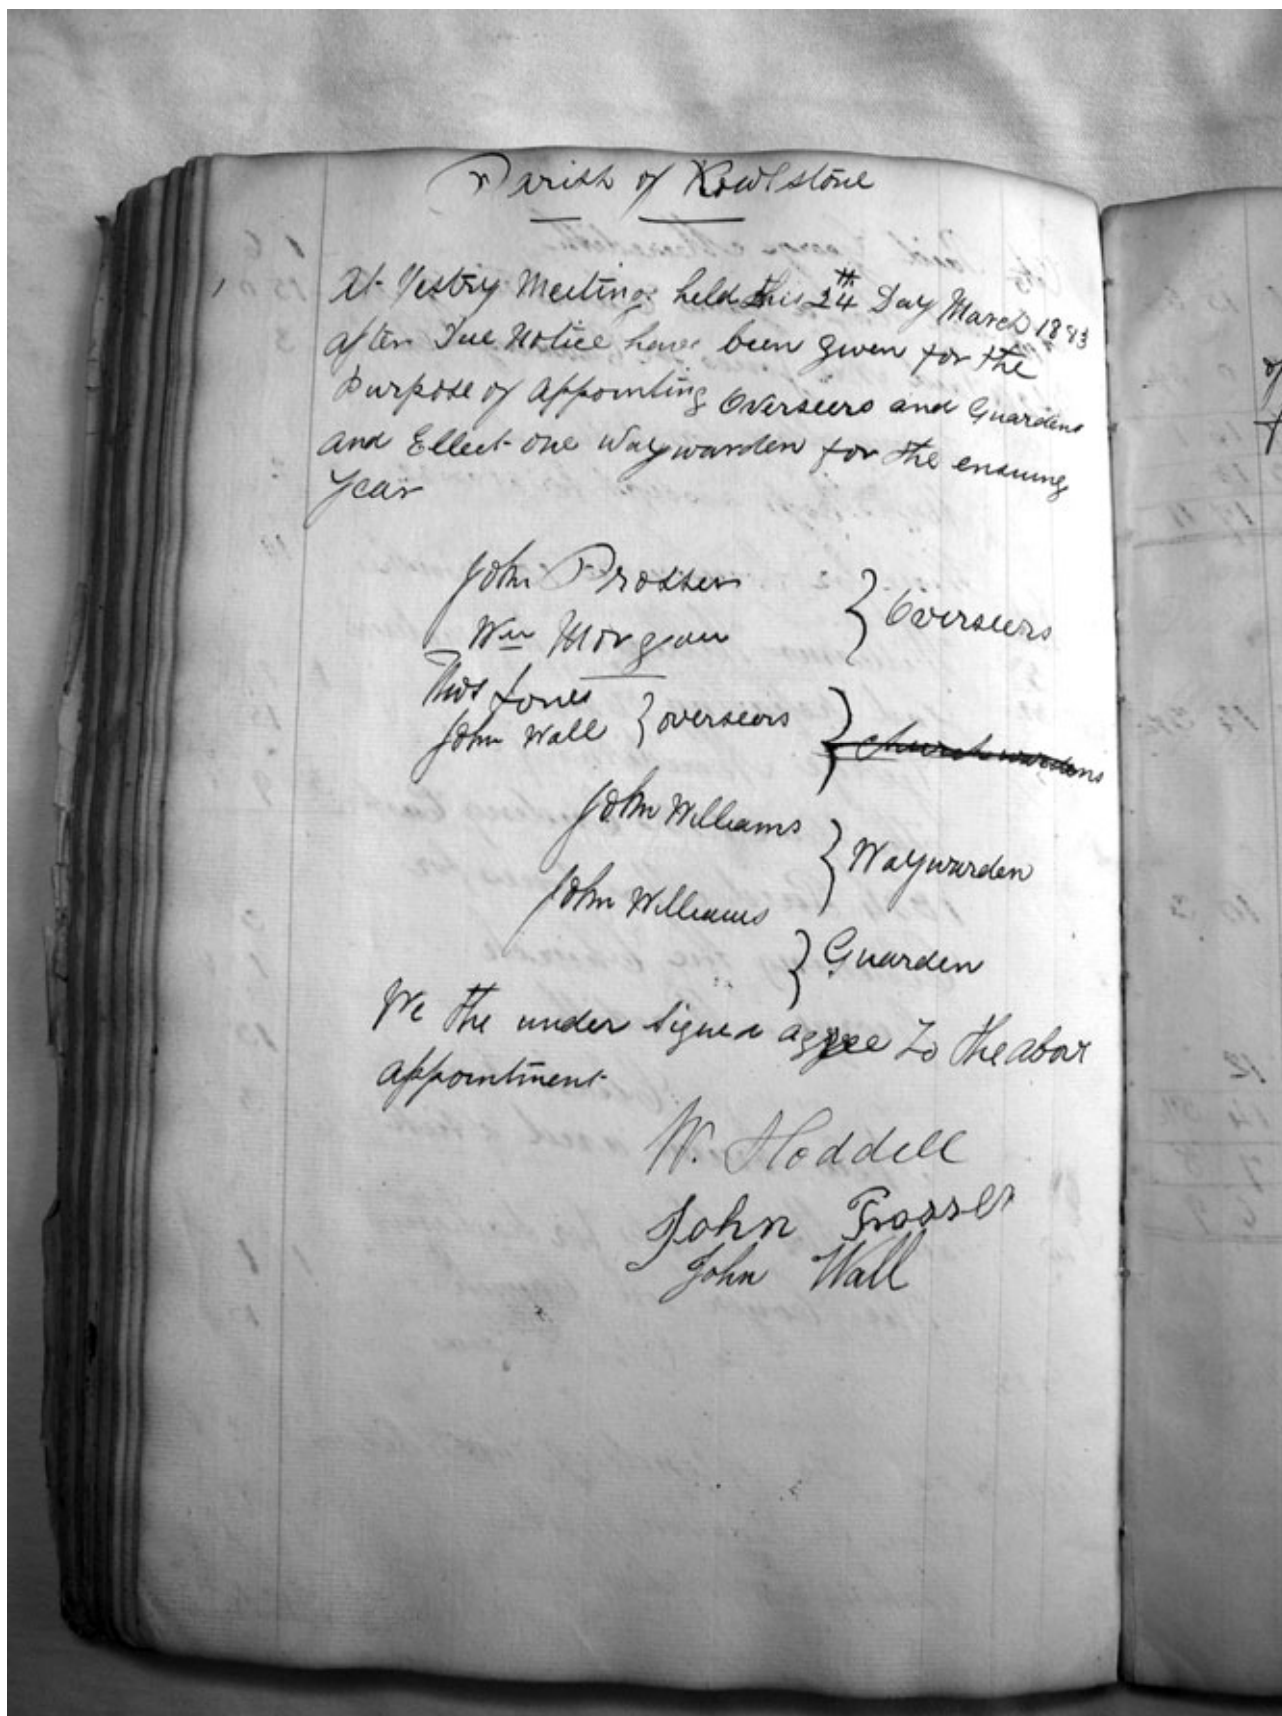 Parish of Rowlstone
At Vestry Meeting held this 24th Day March 1893
after Due Notice have been given for the
Purpose of Appointing Overseers and Guardens
and Ellect one Waywarden for the ensuing
Year
John Prosser
Wm Morgan } Overseers
Thos Jones
John Wall } overseers } Church wardens
John Williams } Waywarden
John Williams } Guarden
We the under signed agree To the abov
appointment
W. Hoddell
John Prosser
John Wall